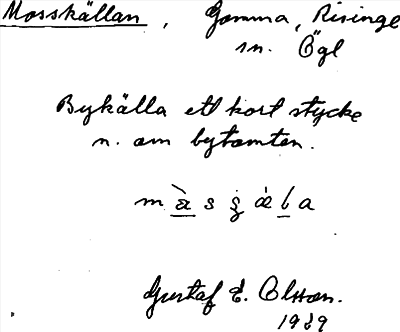 Mosskällan, Gamma, Risinge
sn. Ögl
Bykälla ett kort stycke
n. om bytomten.
Gustaf E. Olsson.
1939